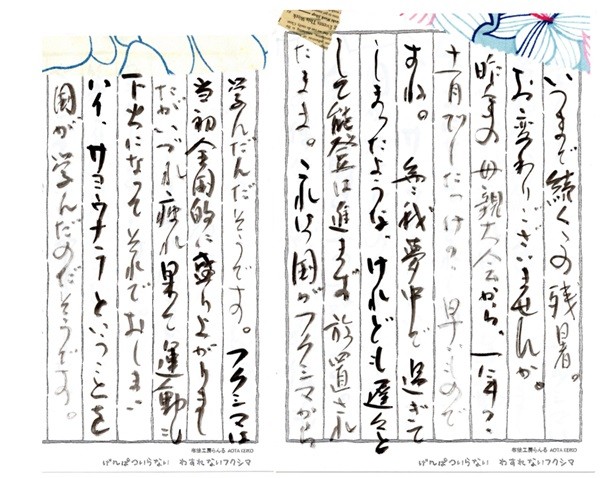 いつまで続くこの残暑。
お変わりございませんか。
昨年の母親大会から、一年
十一月でしたっけ 早いもので
すね。 無我夢中で過ぎて
しまったような、けれども遅々と
して能登は進まず放置され
たまま。これは国がフクシマから
らんる AOTA
げんぱついらない わすれないフクシマ
学んだんだそうです。フクシマは
当初全国的に盛り上がりまし
たがいづれ疲れ果て運動も
下火になってそれでおしまい
ハイ、サヨウナラということを
国が学んだのだそうです。
らんる AOTA
げんぱついらない わすれないフクシマ